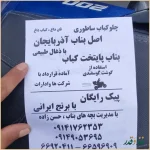 چلوکباب ساطوری
اصل بناب آذربایجان
با ذغال طبیعی
بناب پایتخت کباب
استفاده از
گوشت گوسفندی
آماده قرارداد با
شرکت ها و ادارات
پیک رایگان
با برنج ایرانی
با مدیریت بچه های بناب: حسن زاده
۰۹۱۴۱۷۶۲۳۵۳
۰۹۱۴۹۰۵۳۶۹۵